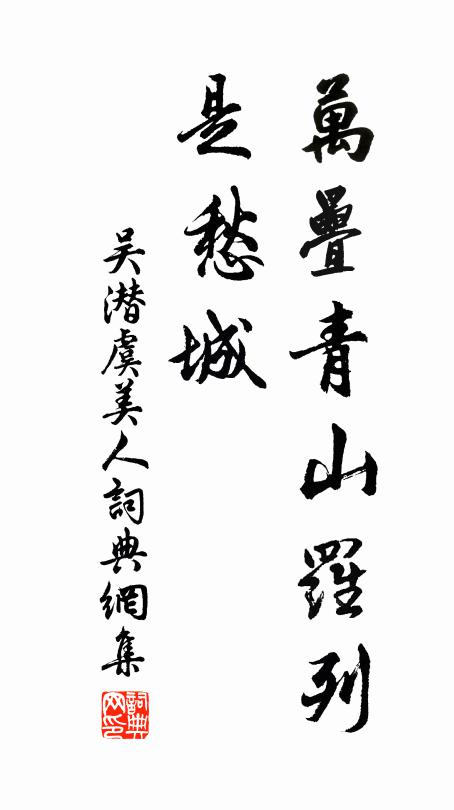 萬疊青山羅列
是愁城
吴潜虞美人詞典網集
詞典网印